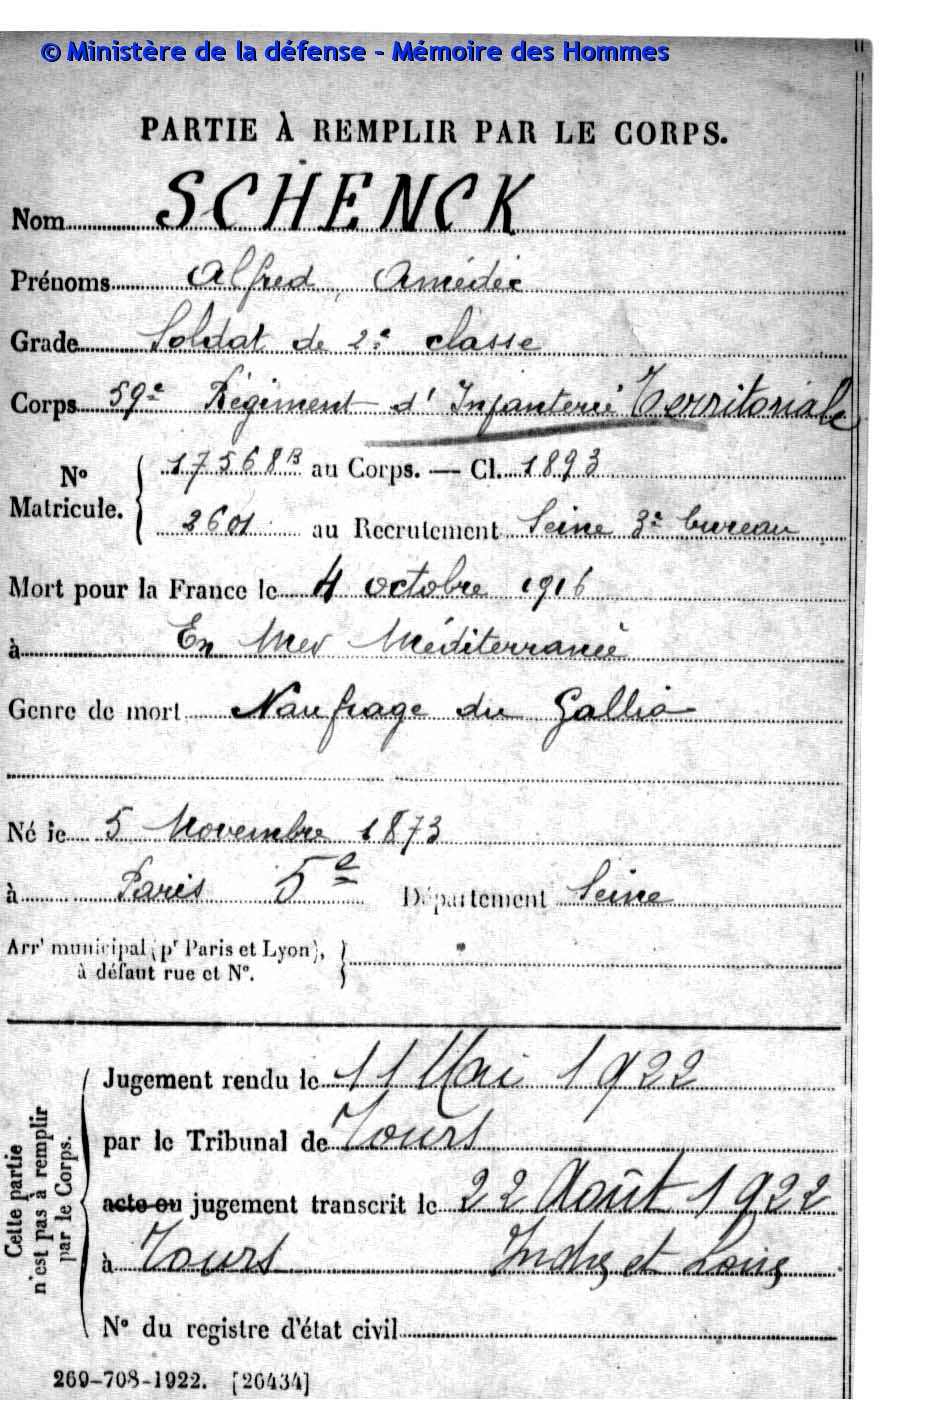 © Ministère de la défense - Mémoire des Hommes
PARTIE À REMPLIR PAR LE CORPS.
Nom SCHENCK
Prénoms Alfred, Amédée
Grade Soldat de 2e classe
Corps 59e Régiment d'Infanterie Territoriale
No Matricule. 17568B au Corps. — Cl. 1893
2601 au Recrutement Seine 3e bureau
Mort pour la France le 4 octobre 1916
à En Mer Méditerranée
Genre de mort Naufrage du Gallia
Né le 5 Novembre 1873
à Paris 5e Département Seine
Arrt municipal (pr Paris et Lyon),
à défaut rue et No.
Cette partie n'est pas à remplir par le Corps.
Jugement rendu le 11 Mai 1922
par le Tribunal de Tours
acte ou jugement transcrit le 22 Août 1922
à Tours Indre et Loire
No du registre d'état civil
269-708-1922. [26434]